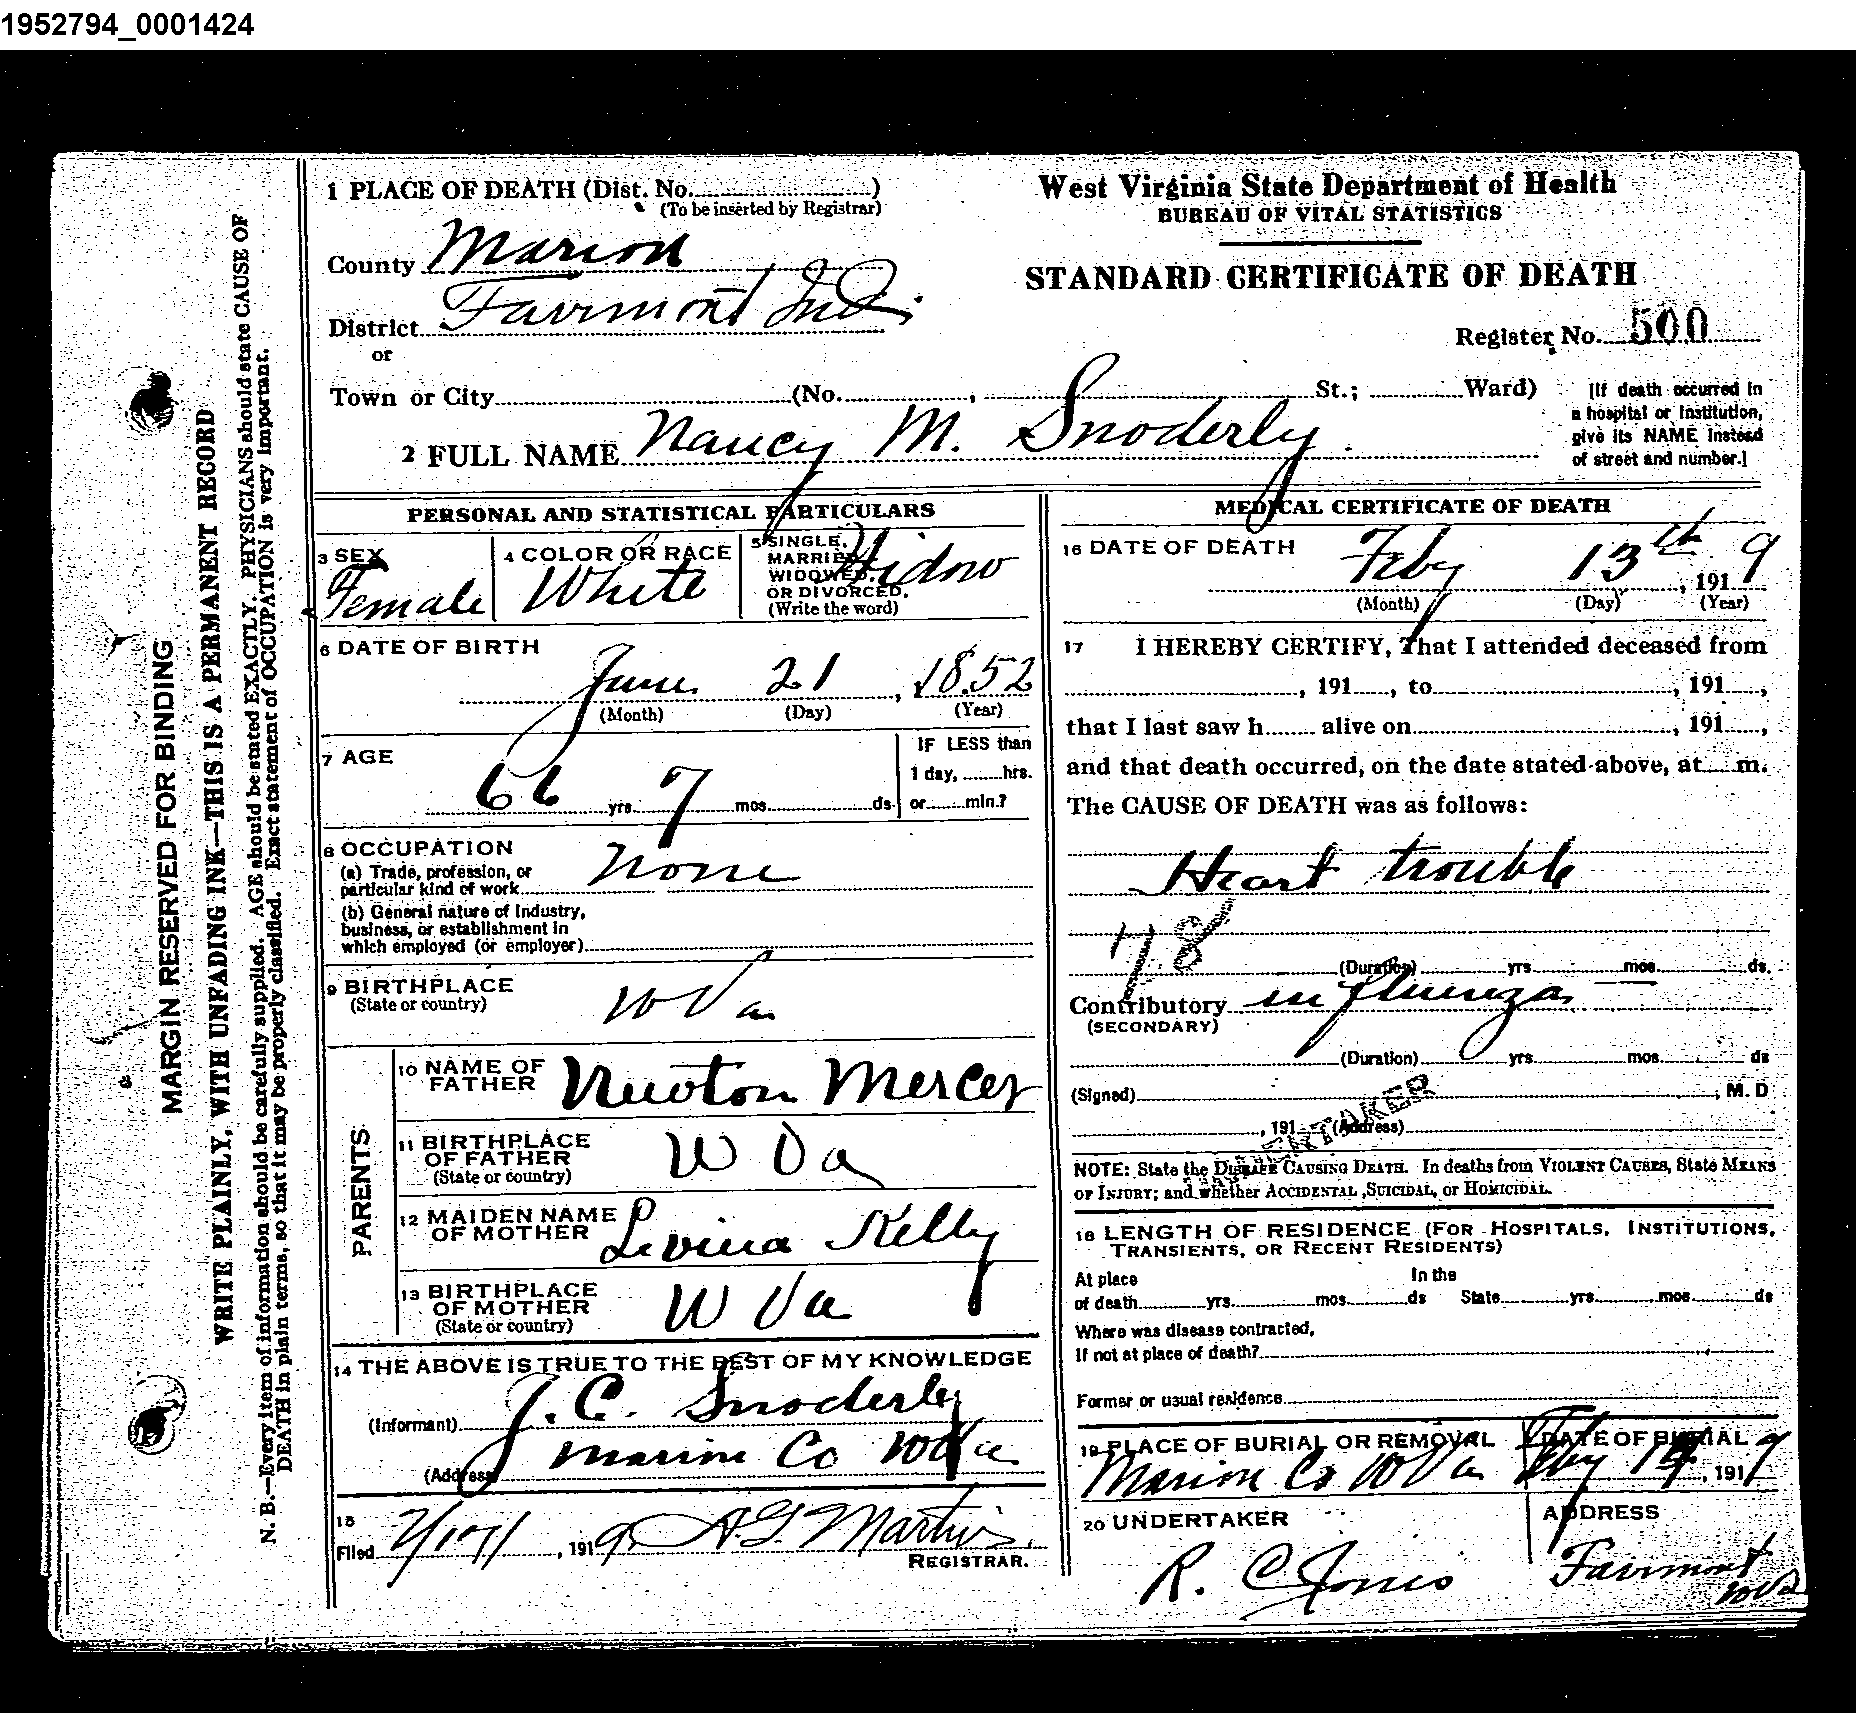 1952794_0001424
MARGIN RESERVED FOR BINDING
WRITE PLAINLY, WITH UNFADING INK—THIS IS A PERMANENT RECORD
N. B.—Every item of information should be carefully supplied. AGE should be stated EXACTLY. PHYSICIANS should state CAUSE OF
DEATH in plain terms, so that it may be properly classified. Exact statement of OCCUPATION is very important.
1 PLACE OF DEATH (Dist. No.
(To be inserted by Registrar)
County Marion
District Fairmont Ind.
or
Town or City (No. , St.; Ward)
West Virginia State Department of Health
BUREAU OF VITAL STATISTICS
STANDARD CERTIFICATE OF DEATH
Register No. 500
[If death occurred in
a hospital or institution,
give its NAME instead
of street and number.]
2 FULL NAME Nancy M. Snoderly.
PERSONAL AND STATISTICAL PARTICULARS
3 SEX
Female
4 COLOR OR RACE
White
5 SINGLE,
MARRIED,
WIDOWED,
OR DIVORCED.
(Write the word)
Widow
6 DATE OF BIRTH
June 21, 1852
(Month) (Day) (Year)
7 AGE
66 yrs. 7 mos. ds.
IF LESS than
1 day, hrs.
or min.?
8 OCCUPATION
(a) Trade, profession, or
particular kind of work none
(b) General nature of Industry,
business, or establishment in
which employed (or employer)
9 BIRTHPLACE
(State or country)
W Va
PARENTS
10 NAME OF
FATHER
Newton Mercer
11 BIRTHPLACE
OF FATHER
(State or country)
W Va
12 MAIDEN NAME
OF MOTHER
Livina Kelly
13 BIRTHPLACE
OF MOTHER
(State or country)
W Va
14 THE ABOVE IS TRUE TO THE BEST OF MY KNOWLEDGE
(Informant) J. C. Snoderly
(Address) Marion Co W Va
15
Filed , 1919 A.G. Martin.
REGISTRAR.
MEDICAL CERTIFICATE OF DEATH
16 DATE OF DEATH
Feby 13th, 1919
(Month) (Day) (Year)
17 I HEREBY CERTIFY, That I attended deceased from
, 191 , to , 191 ,
that I last saw h alive on , 191 ,
and that death occurred, on the date stated above, at m.
The CAUSE OF DEATH was as follows:
Heart trouble
78
(Duration) yrs mos. ds.
Contributory influenza
(SECONDARY)
(Duration) yrs. mos. ds
(Signed) , M. D
, 191 (Address)
UNDERTAKER
NOTE: State the DISEASE CAUSING DEATH. In deaths from VIOLENT CAUSES, State MEANS
OF INJURY; and whether ACCIDENTAL ,SUICIDAL, or HOMICIDAL.
18 LENGTH OF RESIDENCE (FOR HOSPITALS, INSTITUTIONS,
TRANSIENTS, OR RECENT RESIDENTS)
At place In the
of death yrs. mos. ds State yrs. mos. ds
Where was disease contracted,
If not at place of death?
Former or usual residence
19 PLACE OF BURIAL OR REMOVAL
Marion Co W Va
DATE OF BURIAL
Feby , 1919
20 UNDERTAKER
R. C. Jones
ADDRESS
Fairmont
W Va